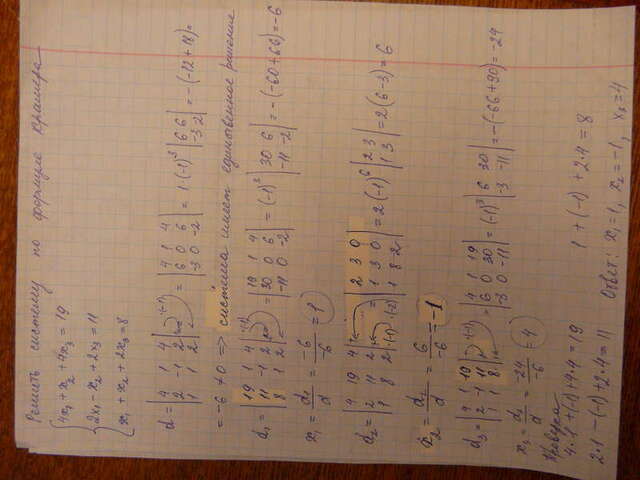 Решить систему по формуле Крамера
4x₁ + x₂ + 4x₃ = 19
2x₁ - x₂ + 2x₃ = 11
x₁ + x₂ + 2x₃ = 8
d = |4 1 4; 2 -1 2; 1 1 2| = |4 1 4; 6 0 6; -3 0 -2| = 1·(-1)³ |6 6; -3 2| = -(-12+18) =
= -6 ≠ 0 ⇒ система имеет единственное решение
d₁ = |19 1 4; 11 -1 2; 8 1 2| = |19 1 4; 30 0 6; -11 0 -2| = (-1)³ |30 6; -11 -2| = -(-60+66) = -6
x₁ = d₁/d = -6/-6 = 1
d₂ = |4 19 4; 2 11 2; 1 8 2| ·(-1) ·(-2) = |2 3 0; 1 3 0; 1 8 2| = 2(-1)⁶ |2 3; 1 3| = 2(6-3) = 6
x₂ = d₂/d = 6/-6 = -1
d₃ = |4 1 19; 2 -1 11; 1 1 8| = |4 1 19; 6 0 30; -3 0 -11| = (-1)³ |6 30; -3 -11| = -(-66+90) = -24
x₃ = d₃/d = -24/-6 = 4
Проверка
4·1 + (-1) + 4·4 = 19
2·1 - (-1) + 2·4 = 11
1 + (-1) + 2·4 = 8
Ответ: x₁ = 1, x₂ = -1, x₃ = 4